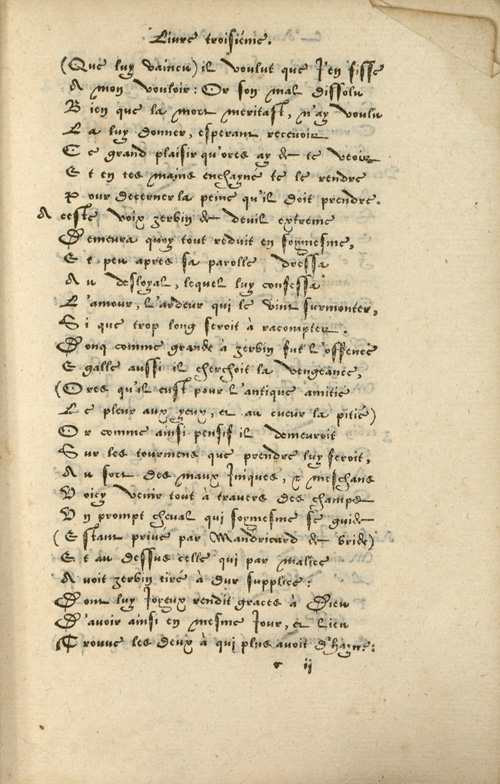 Livre troisiéme.
(Que luy vaincu) il voulut que j'en fisse
A mon vouloir: Or son mal dissolu
Bien que la mort meritast, n'ay voulu
La luy donner, esperant recevoir
Ce grand plaisir qu'ores ay de te veoir
Et en tes mains enchayne te le rendre
Pour decerner la peine qu'il doit prendre.
A ceste voix zerbin de deuil extreme
Demeura quoy tout reduit en soymesme,
Et peu apres sa parolle dressa
Au desloyal, lequel luy confessa
L'amour, l'ardeur qui le vint surmonter,
Si que trop long seroit à racompter.
Donq comme grande à zerbin fut l'offence
Egalle aussi il cherchoit la vengeance,
(Ores qu'il eust pour l'antique amitie
Le pleur aux yeux, et au cueur la pitie)
Or comme ainsi pensif il demeuroit
Sur les tourmens que prendre luy feroit,
Au sort des maux Iniques, & meschans
Voicy venir tout à travers des champs
Un prompt cheval qui soymesme se guide
(Estant privé par Mandricard de bride)
Et au dessus celle qui par malice
Avoit zerbin tiré à dur supplice:
Dont luy Joyeux rendit graces à Dieu
D'avoir ainsi en mesme Jour, et lieu
Trouve les deux à qui plus avoit d'hayne:
ij